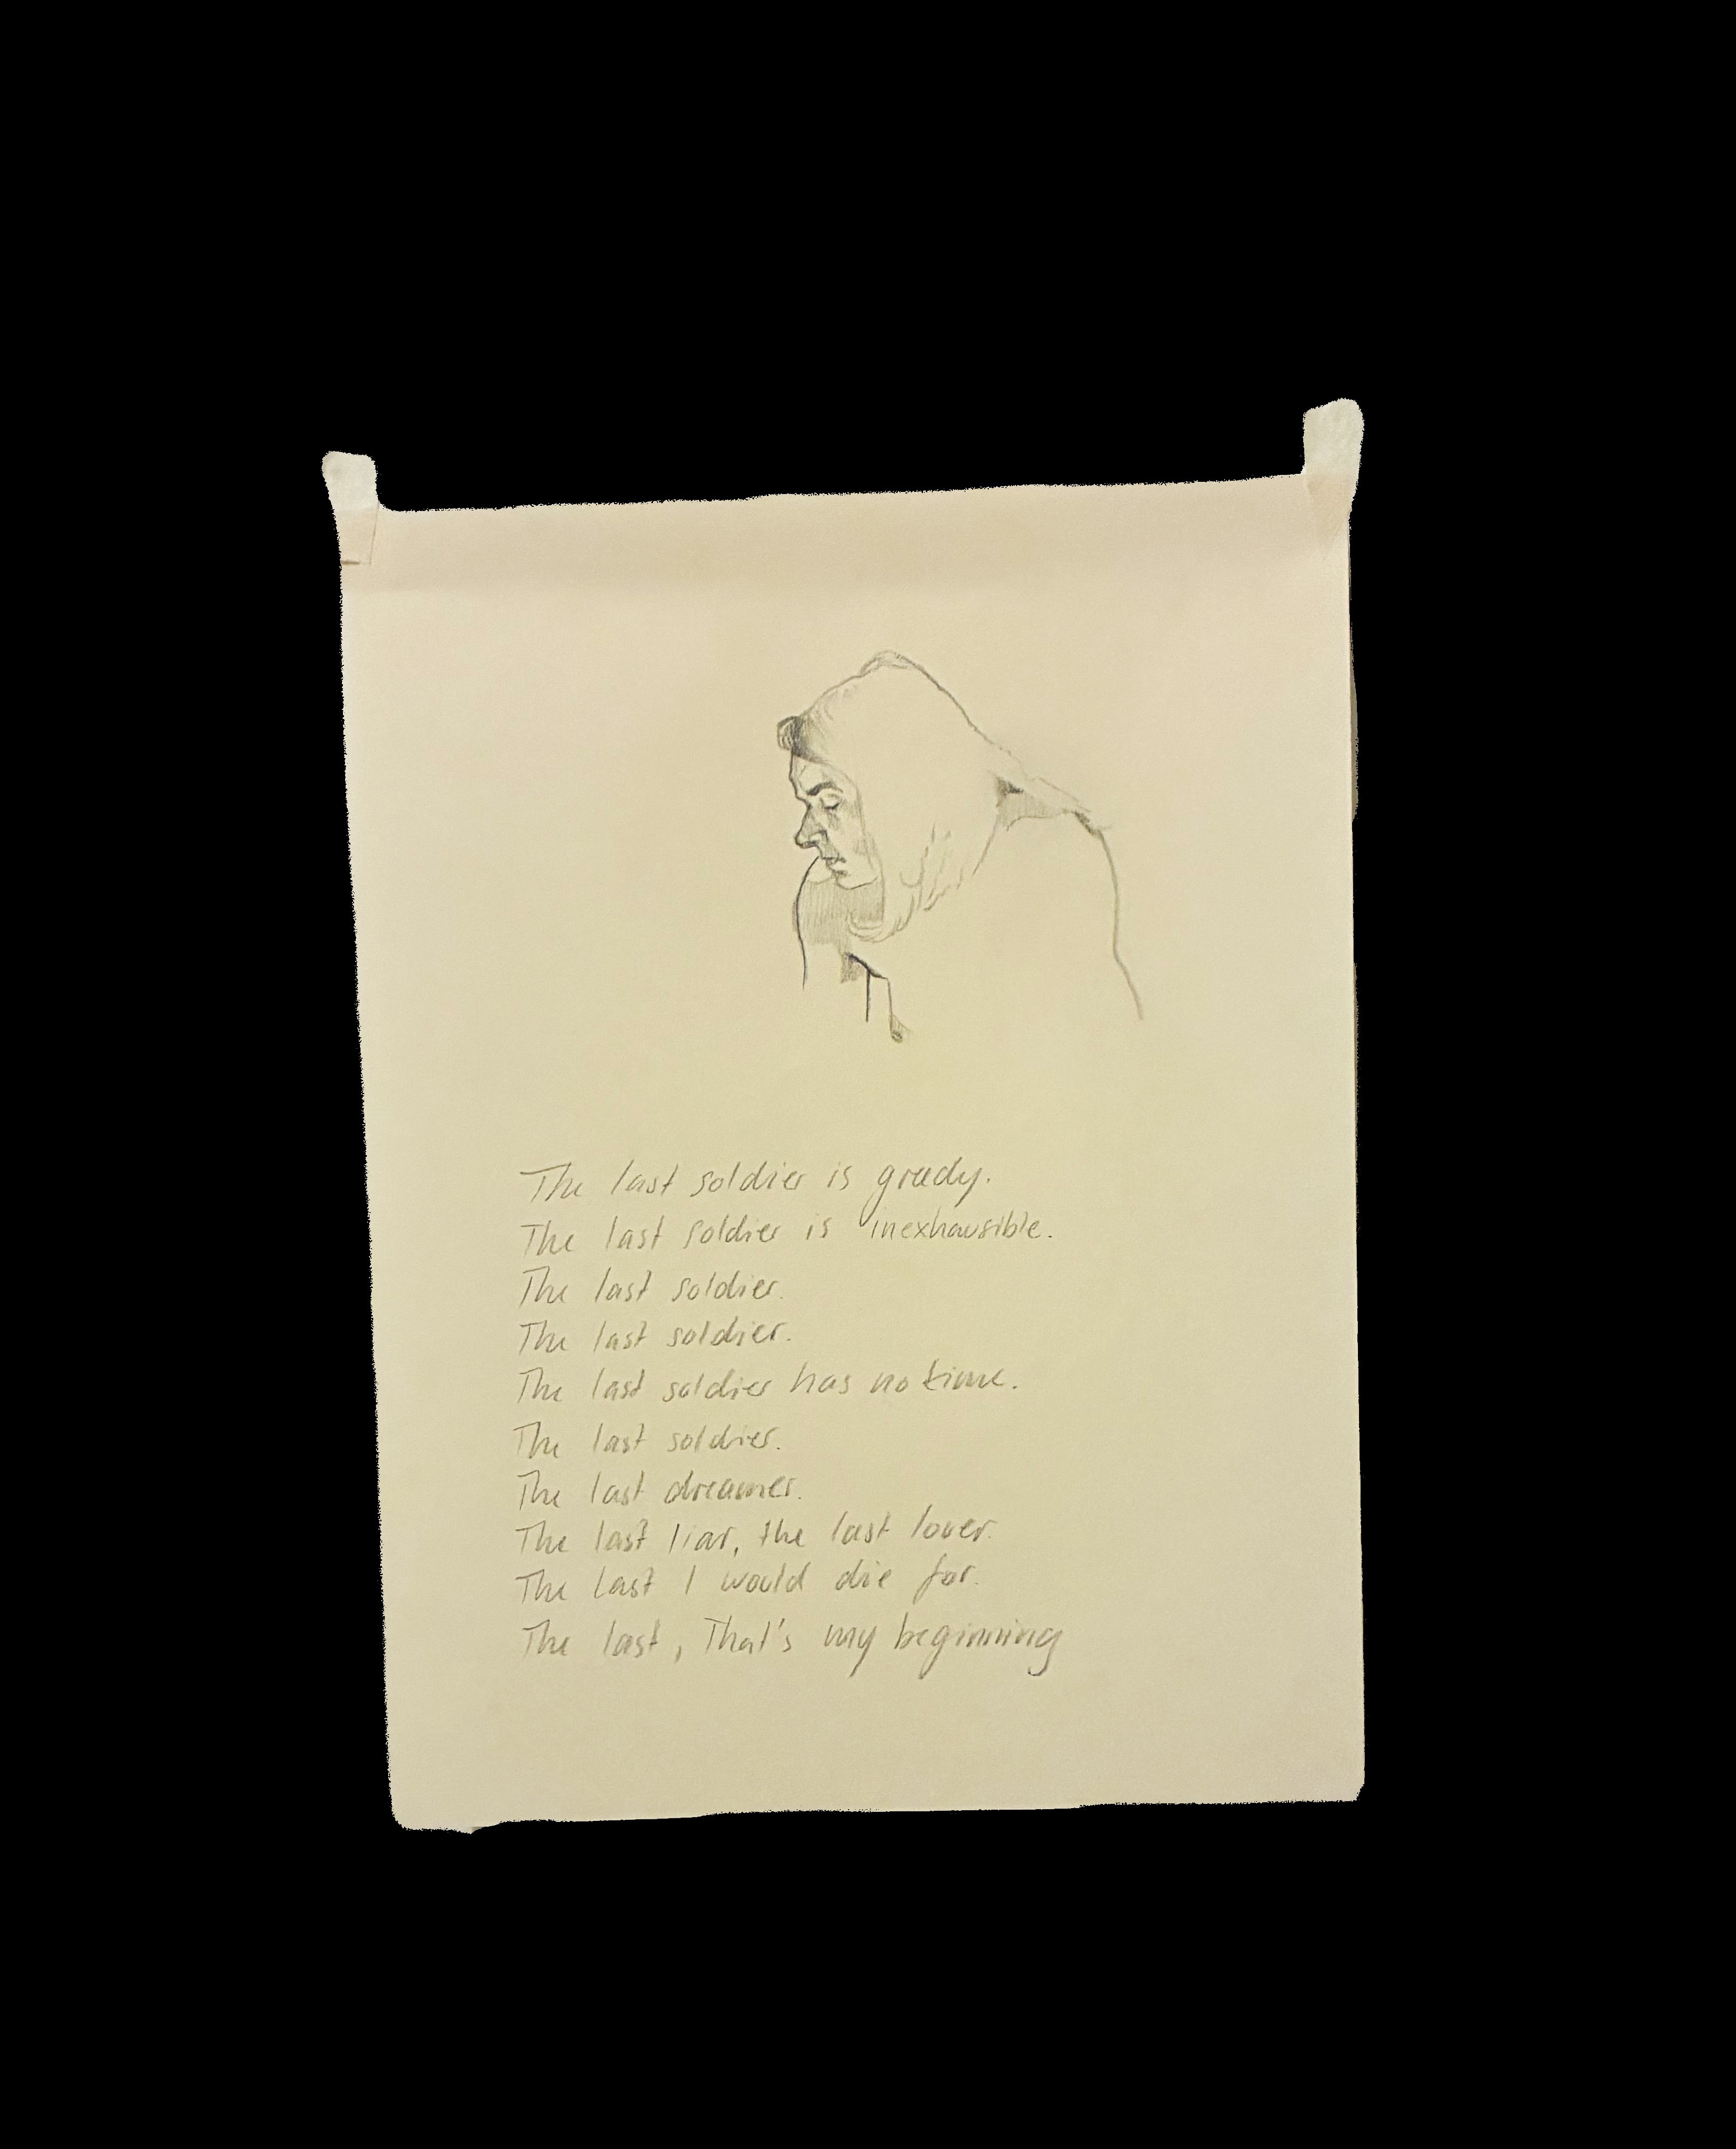 The last soldier is greedy.
The last soldier is inexhausible.
The last soldier.
The last soldier.
The last soldier has no time.
The last soldier.
The last dreamer.
The last liar, the last lover.
The last I would die for.
The last, That's my beginning